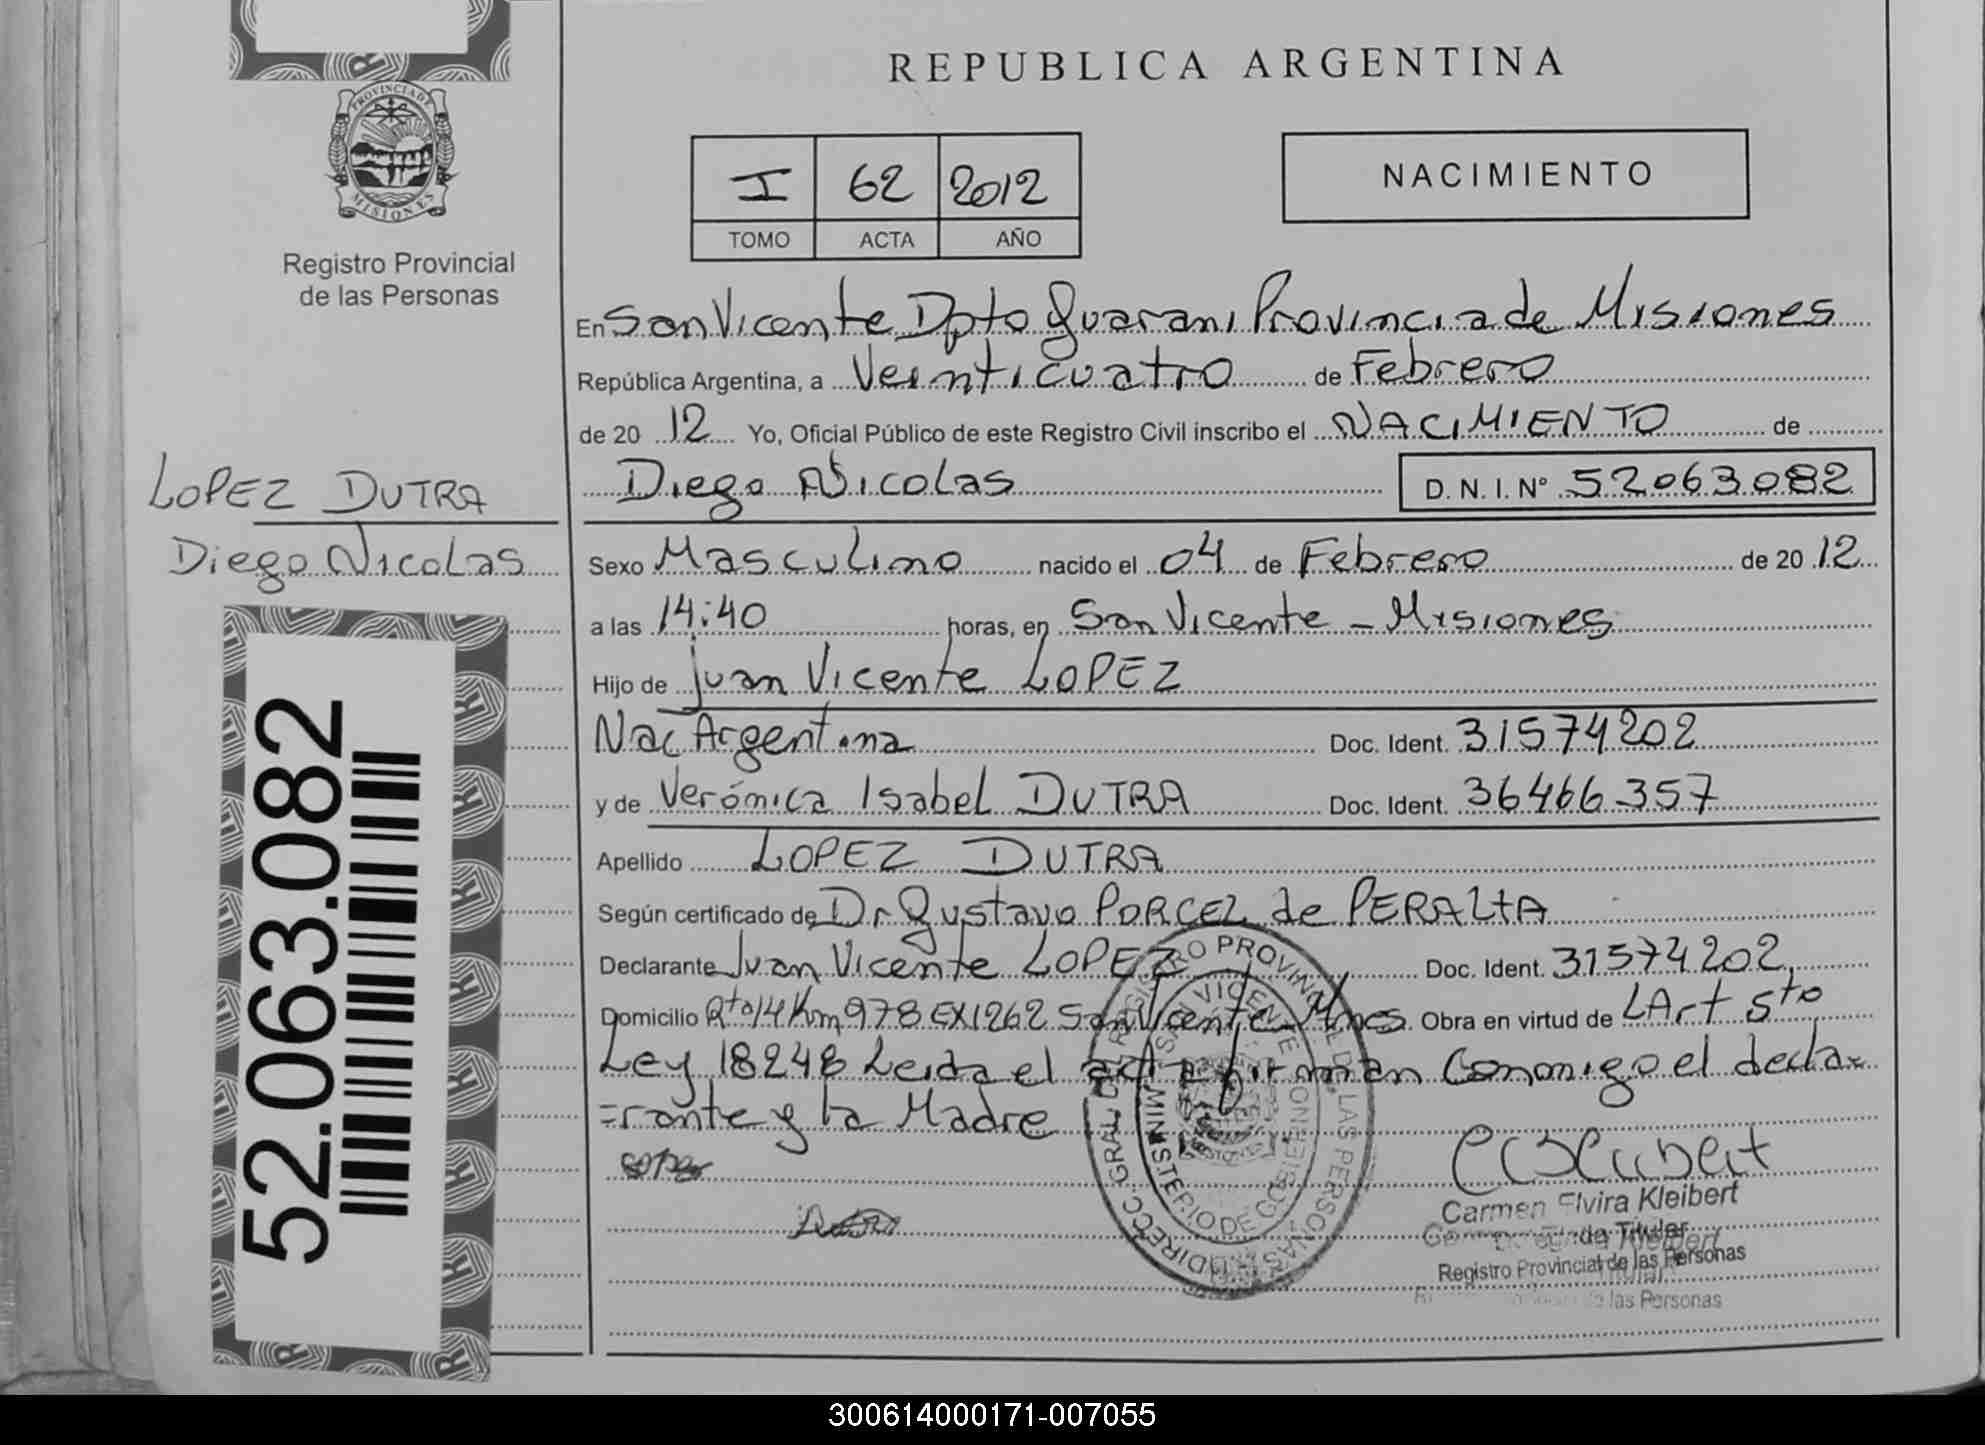 REPUBLICA ARGENTINA
PROVINCIA DE
MISIONES
Registro Provincial
de las Personas
I 62 2012
TOMO ACTA AÑO
NACIMIENTO
En San Vicente Dpto Guarani Provincia de Misiones
República Argentina, a Veinticuatro de Febrero
de 20 12 Yo, Oficial Público de este Registro Civil inscribo el NACIMIENTO de
Diego Nicolas D. N. I. Nº 52063082
LOPEZ DUTRA
Diego Nicolas
Sexo Masculino nacido el 04 de Febrero de 20 12
a las 14:40 horas, en San Vicente - Misiones
Hijo de Juan Vicente LOPEZ
Nac Argentina Doc. Ident. 31574202
y de Verónica Isabel DUTRA Doc. Ident. 36466357
Apellido LOPEZ DUTRA
Según certificado de Dr Gustavo PORCEL de PERALTA
Declarante Juan Vicente LOPEZ Doc. Ident. 31574202,
Domicilio Rta 14 Km 978 EX1262 San Vicente - Mnes. Obra en virtud de L Art 5to
Ley 18248 Leida el acta firman Conmigo el decla-
=rante y la Madre
52.063.082
DIRECC. GRAL. DEL REGISTRO PROVINCIAL DE LAS PERSONAS
SAN VICENTE
MINISTERIO DE GOBIERNO
Carmen Elvira Kleibert
Titular
Registro Provincial de las Personas
de las Personas
300614000171-007055